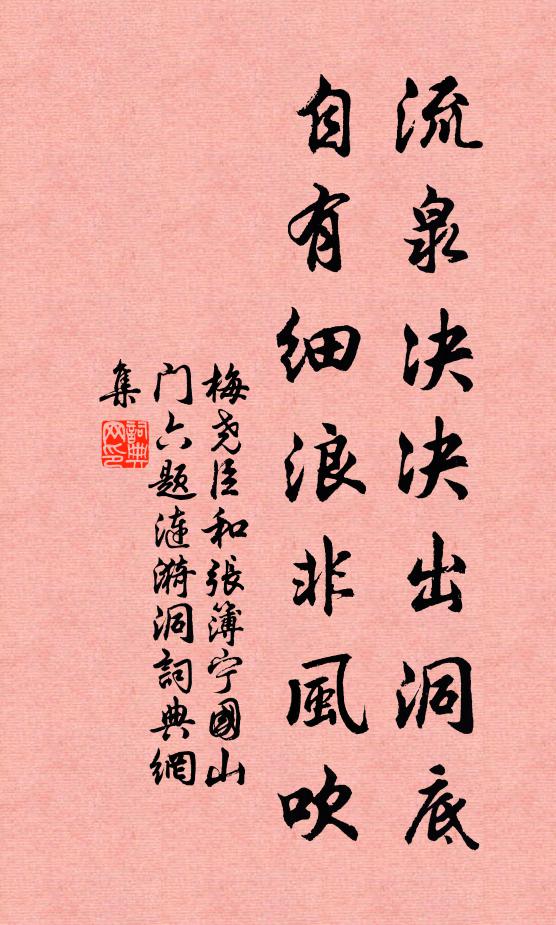 流泉决决出洞底
自有细浪非風吹
梅尧臣和張簿宁國山
门六题涟漪洞詞典網
集
詞典网印